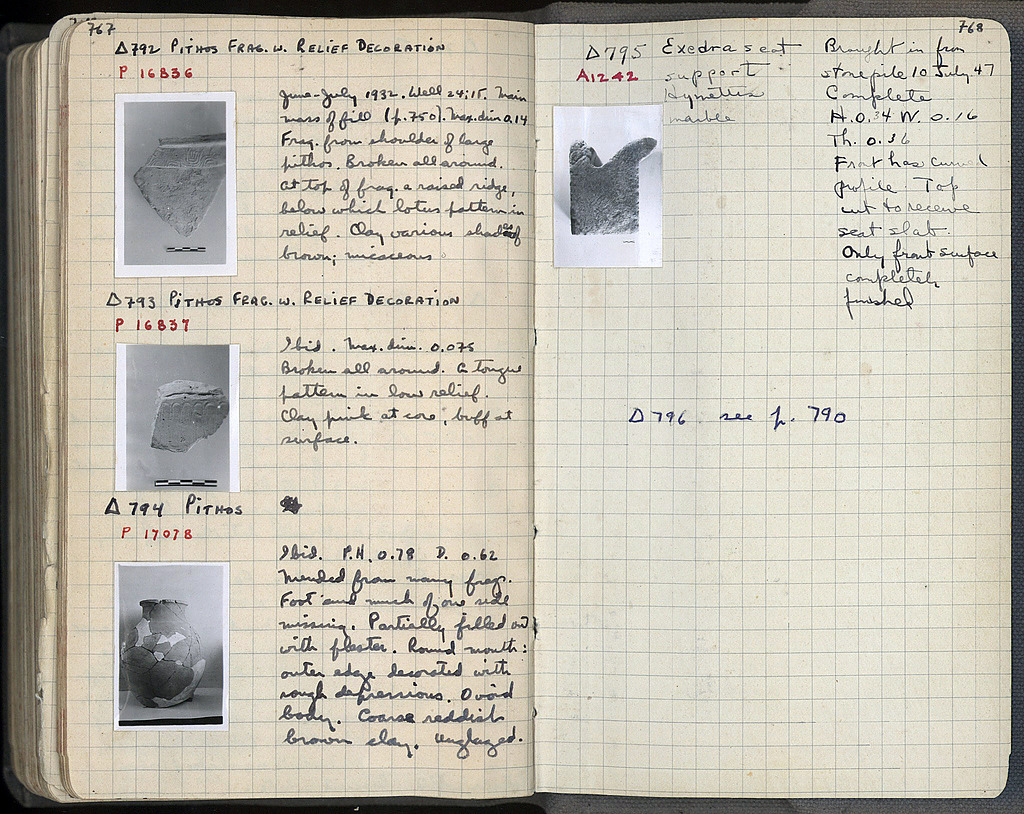 767
Δ792 PITHOS FRAG. W. RELIEF DECORATION
P 16836
June-July 1932. Well 24:15. Main
mass of fill (p.750). Max. dim 0.14
Frag. from shoulder of large
pithos. Broken all around.
At top of frag. a raised ridge,
below which lotus pattern in
relief. Clay various shades of
brown; micaceous.
Δ793 PITHOS FRAG. W. RELIEF DECORATION
P 16837
Ibid. Max. dim. 0.075
Broken all around. A tongue
pattern in low relief.
Clay pink at core, buff at
surface.
Δ794 PITHOS
P 17078
Ibid. P.H. 0.78 D. 0.62
Mended from many frags.
Foot and much of one side
missing. Partially filled out
with plaster. Round mouth:
outer edge decorated with
rough depressions. Ovoid
body. Coarse reddish
brown clay. Unglazed.
768
Δ795 Exedra seat
A1242 support
Hymettus
marble
Brought in from
stonepile 10 July 47
Complete
H. 0.34 W. 0.16
Th. 0.36
Front has curved
profile. Top
cut to receive
seat slab.
Only front surface
completely
finished
Δ796 see p. 790